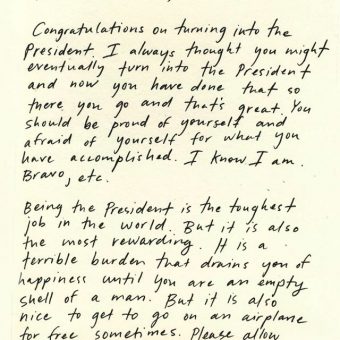 Congratulations on turning into the
President. I always thought you might
eventually turn into the President
and now you have done that so
there you go and that's great. You
should be proud of yourself and
afraid of yourself for what you
have accomplished. I know I am.
Bravo, etc.
Being the President is the toughest
job in the world. But it is also
the most rewarding. It is a
terrible burden that drains you of
happiness until you are an empty
shell of a man. But it is also
nice to get to go on an airplane
for free sometimes. Please allow